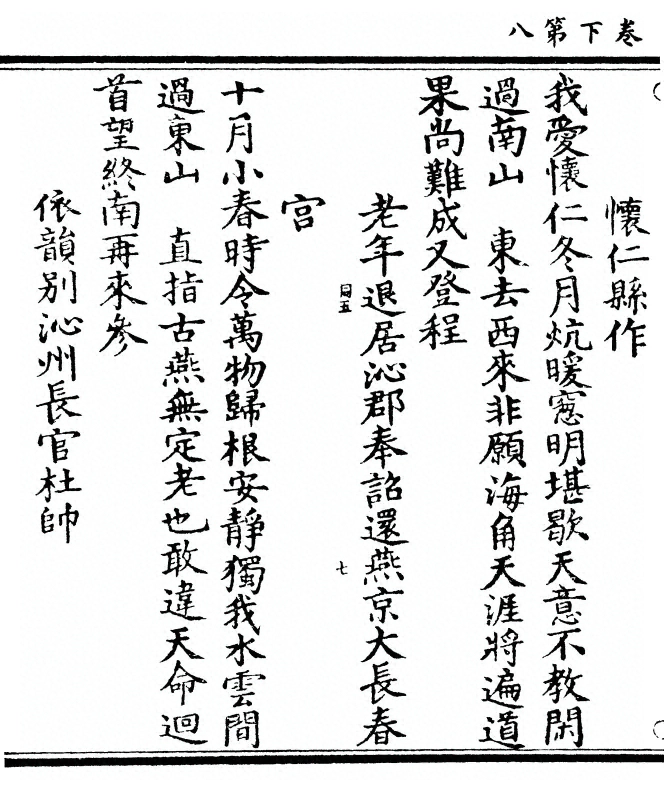 卷下第八
懷仁縣作
我愛懷仁冬月炕暖窓明堪歇天意不教閑
過南山　東去西來非願海角天涯將遍道
果尚難成又登程
老年退居沁郡奉詔還燕京大長春
宮
同五
七
十月小春時令萬物歸根安靜獨我水雲間
過東山　直指古燕無定老也敢違天命迴
首望終南再來參
依韻别沁州長官杜帥